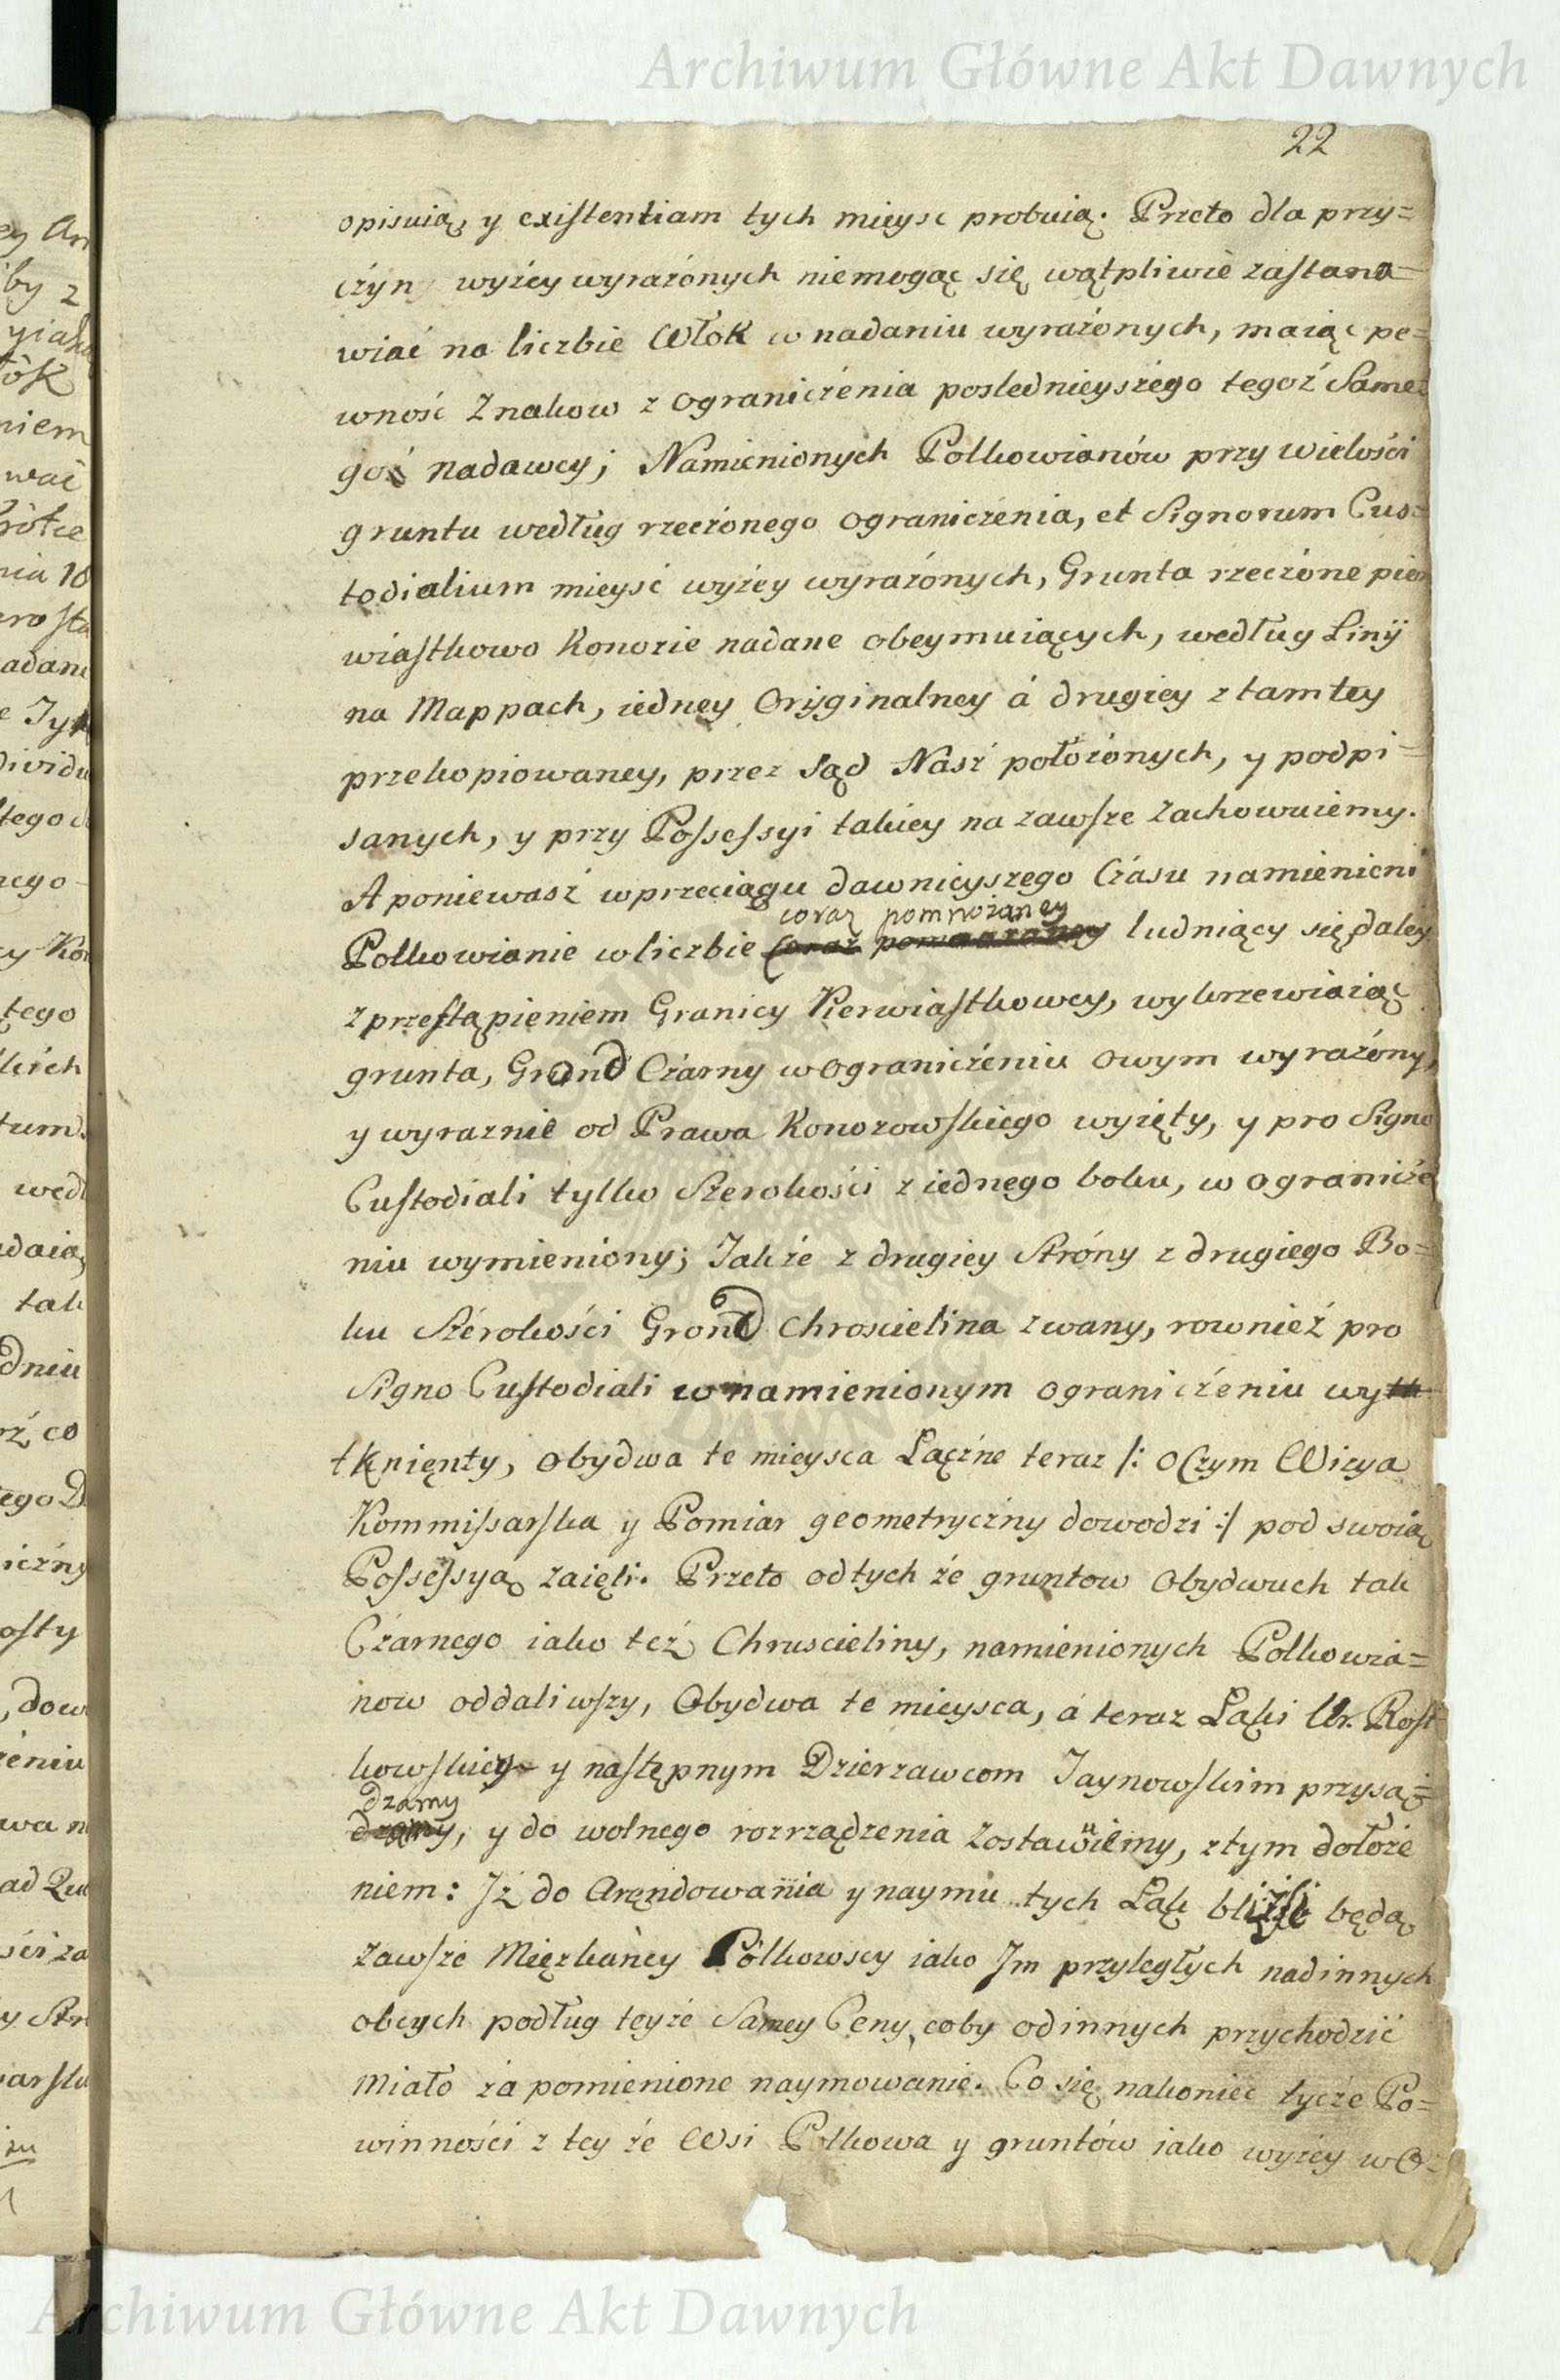 Archiwum Główne Akt Dawnych
22
opisuią, y existentiam tych mieysc probuią. Przeto dla przy=
czyn wyżey wyrażónych niemogąc się wątpliwie zastana=
wiać na liczbie Włok w nadaniu wyrażonych, maiąc pe=
wność Znakow z ograniczenia poslednieyszégo tegoż Same=
goż nadawcy; Namienionych Polkowianów przy wielości
gruntu według rzeczonego ograniczénia, et Signorum Cus=
todialium mieysć wyżey wyrażónych, Grunta rzeczóne pier
wiastkowo Konozie nadane obeymuiących, według Linij
na Mappach, iedney Oryginalney á drugiey z tamtey
przekopiowaney, przez Sąd Nász położónych, y podpi=
sanych, y przy Possessyi takiey na zawsze zachowuiemy.
A ponieważ w przeciągu dawnieyszego Czásu namienieni
coraz pomnożaney
Polkowianie w liczbie ludniący się daley
z przestąpieniem Granicy Pierwiastkowey, wykrzewiaiąc
grunta, Grond Czárny w ograniczéniu owym wyrażóny,
y wyraznie od Prawa Konozowskiego wyięty, y pro Signo
Custodiali tylko Szerokości z iednego boku, w ogranicże
niu wymieniony; Jakże z drugiey Stróny z drugiego Bo=
ku Szérokości Grond Chroscielina zwany, rownież pro
Signo Custodiali w namienionym ograniczéniu wy
tknięnty, obydwa te mieysca Łączne teraz /: o czym Wizya
Kommissarska y Pomiar geometryczny dowodzi :/ pod swoią
Possessyą zaięli. Przeto od tych że gruntow Obydwuch tak
Czárnego iako też Chruscieliny, namienionych Polkowia=
now oddaliwszy, Obydwa te mieysca, á teraz Łąki Ur. Rost
kowskiey y następnym Dzierzawcom Jaynowskim przysą=
dzamy
y do wolnego rozrządzenia zostawiemy, z tym dołoże
niem: Jż do Aręndowania y naymu tych Łąk bliżsi będą
zawsze Mięzkańcy Pólkowscy iako Jm przyległych nad innych
obcych podług teyże Samey Ceny, coby od innych przychodzić
miało zá pomienione naymowanie. Co się nakoniec tycze Po=
winności z tey że Wsi Polkowa y gruntów iako wyżey w O=
Archiwum Główne Akt Dawnych